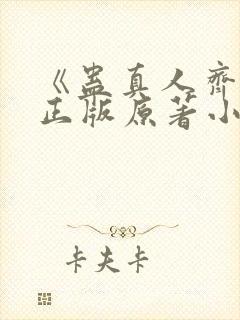 《蛊真人齐
正版原著小
卡夫卡